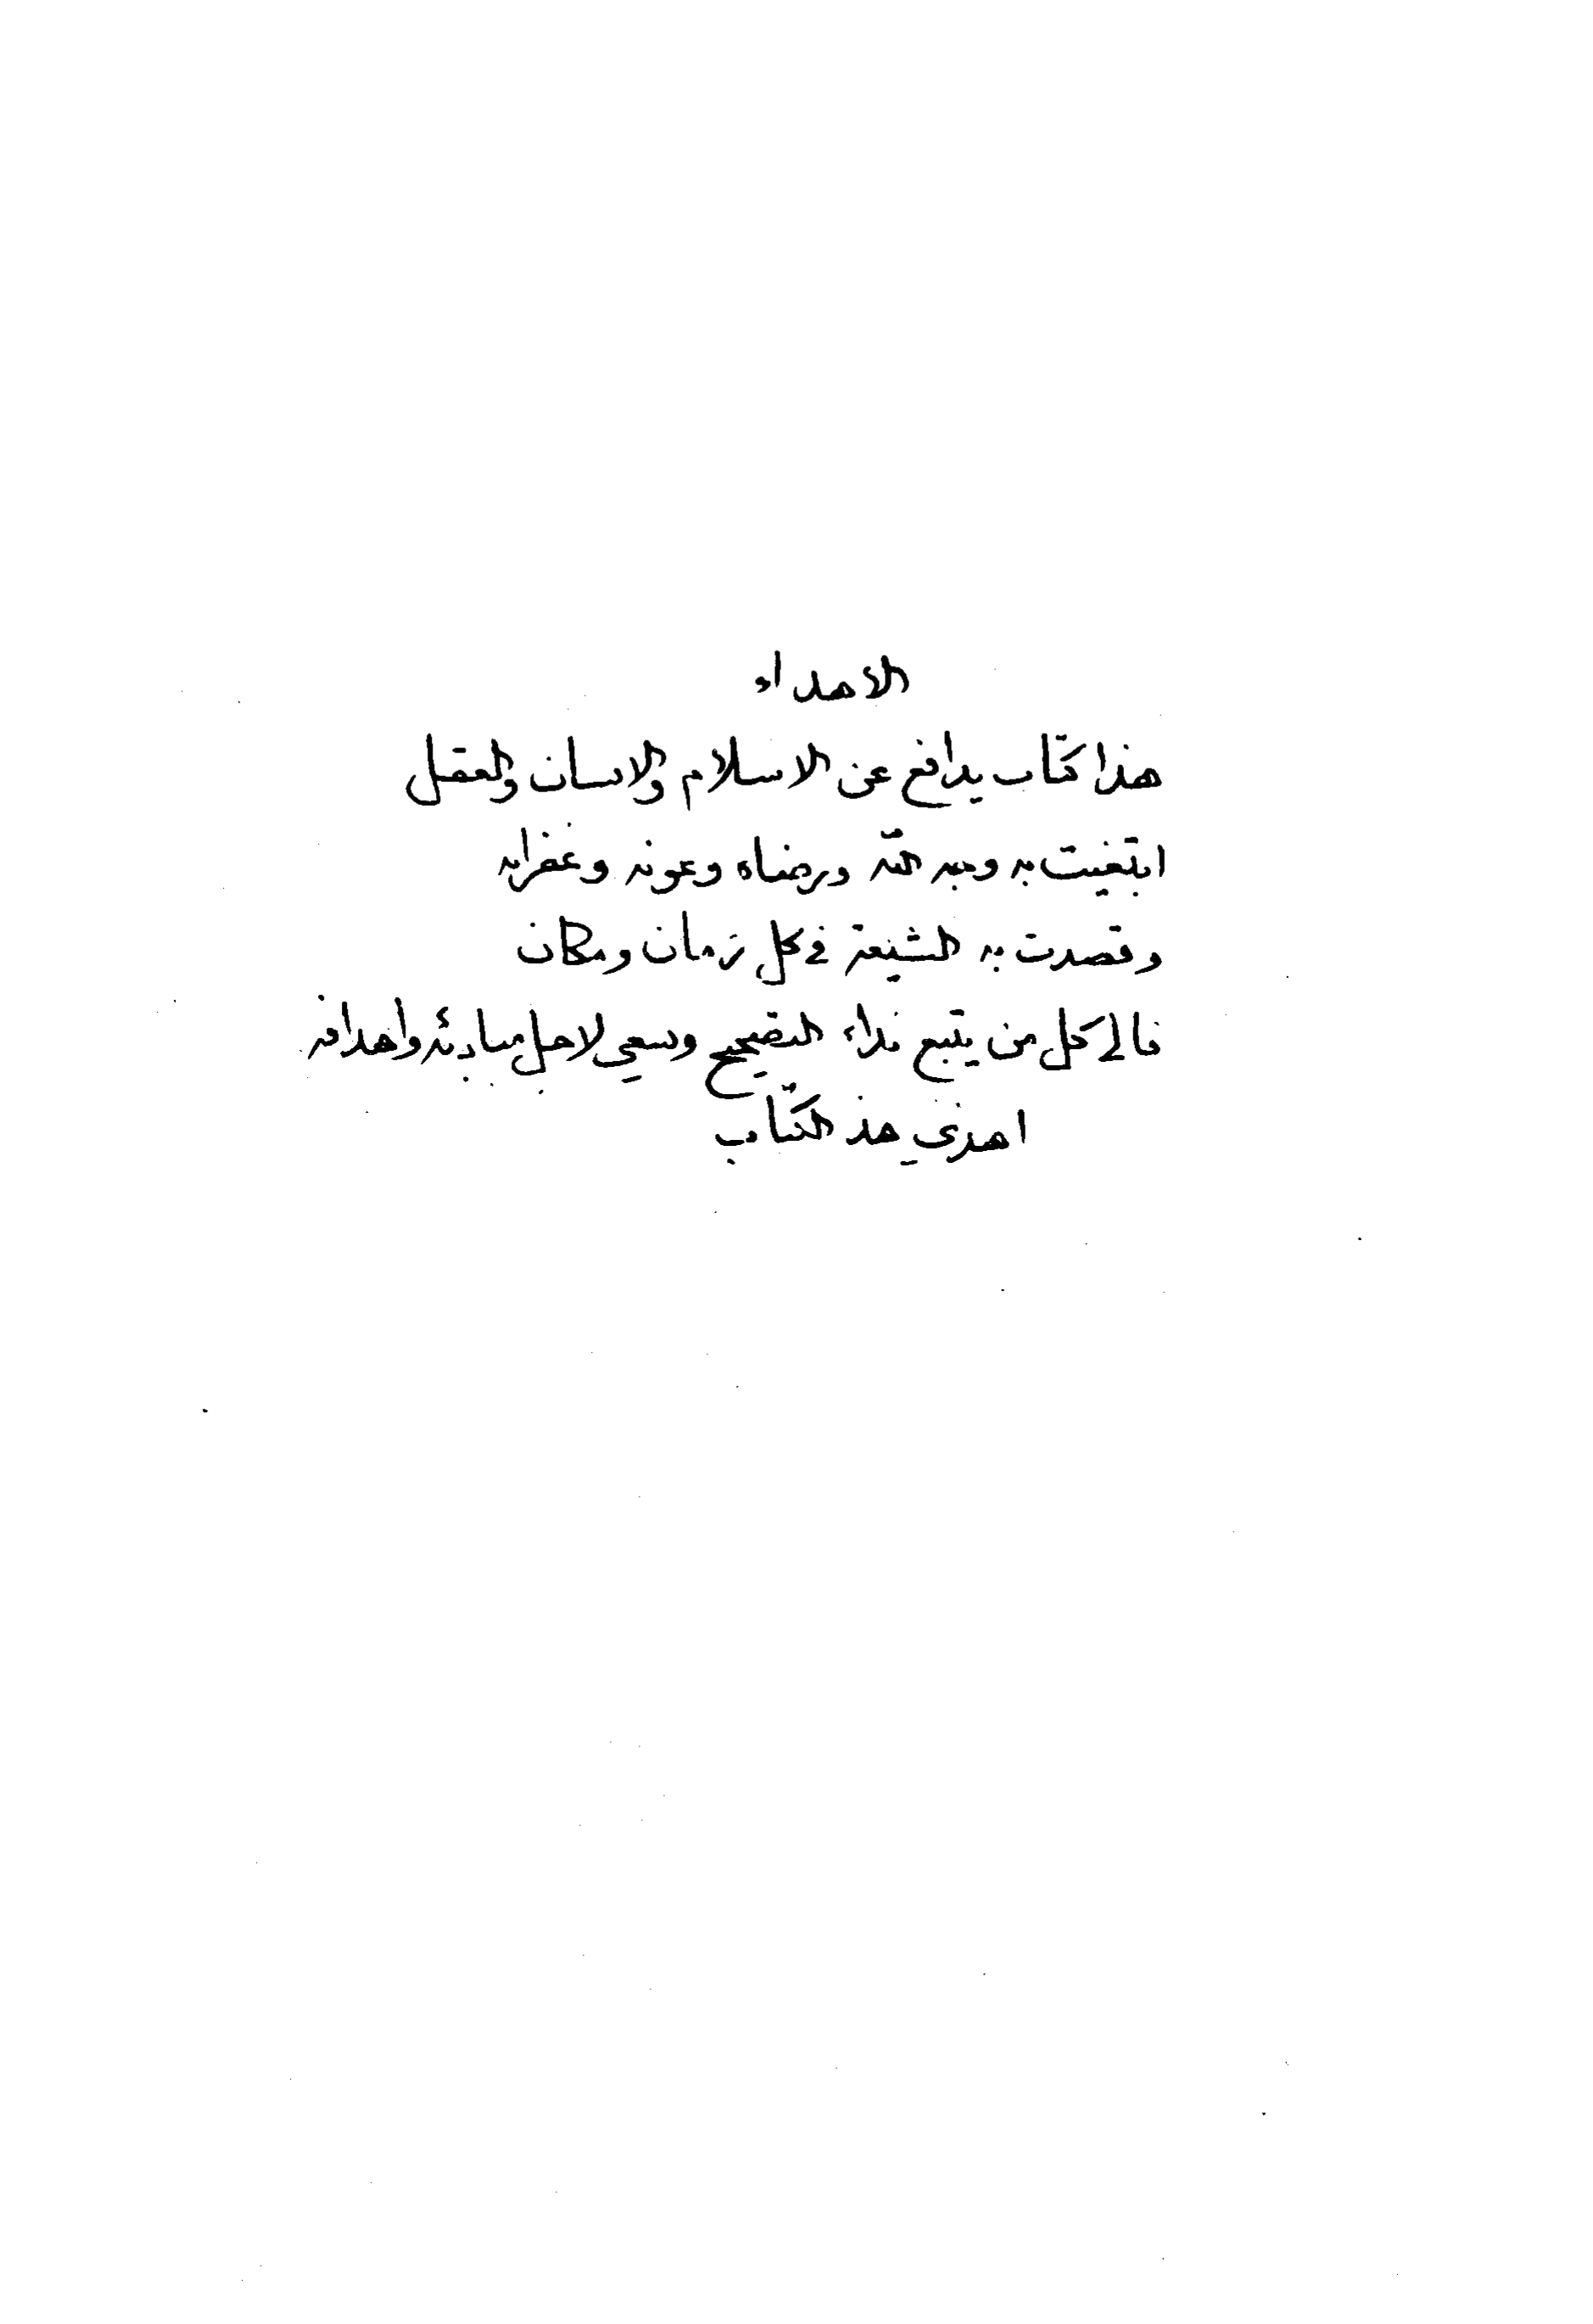 الاهداء
هذا كتاب يدافع عن الاسلام والانسان والعقل
ابتغيت به وجه الله ورضاه وعونه وغفرانه
وقصدت به الشيعة في كل زمان ومكان
فالى كل من يتبع نداء التصحيح وسعي لاجل مبادئه وأهدافه
اهدي هذ الكتاب